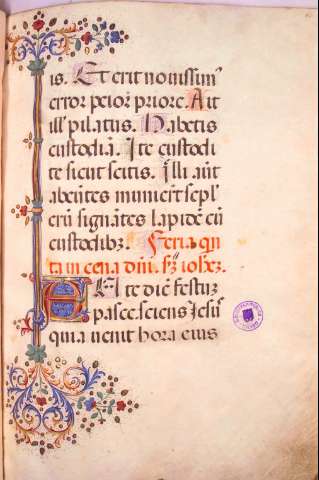 is. Et erit novissim'
error peior priore. Ait
ill' pilatus. Habetis
custodiā. Ite custodi
te sicut scitis. Illi aūt
abeūtes munierūt sepl'
crū signātes lapidē cū
custodibꝫ. Feria qn
ta in cena dni. sꝫ iohēꝫ.
Ante diē festuꝫ
pasce. sciens Jesus
quia uenit hora eius